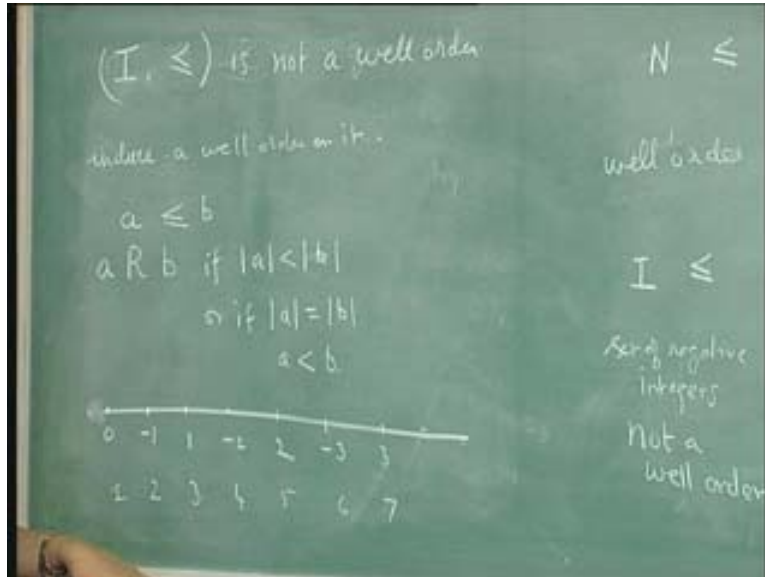 (I, ≤) is not a well order
induce a well order on it.
a ≤ b
a R b if |a| < |b|
or if |a| = |b|
a < b
0 -1 1 -2 2 -3 3
1 2 3 4 5 6 7
N ≤
well order
I ≤
Set of negative
integers
Not a
well order